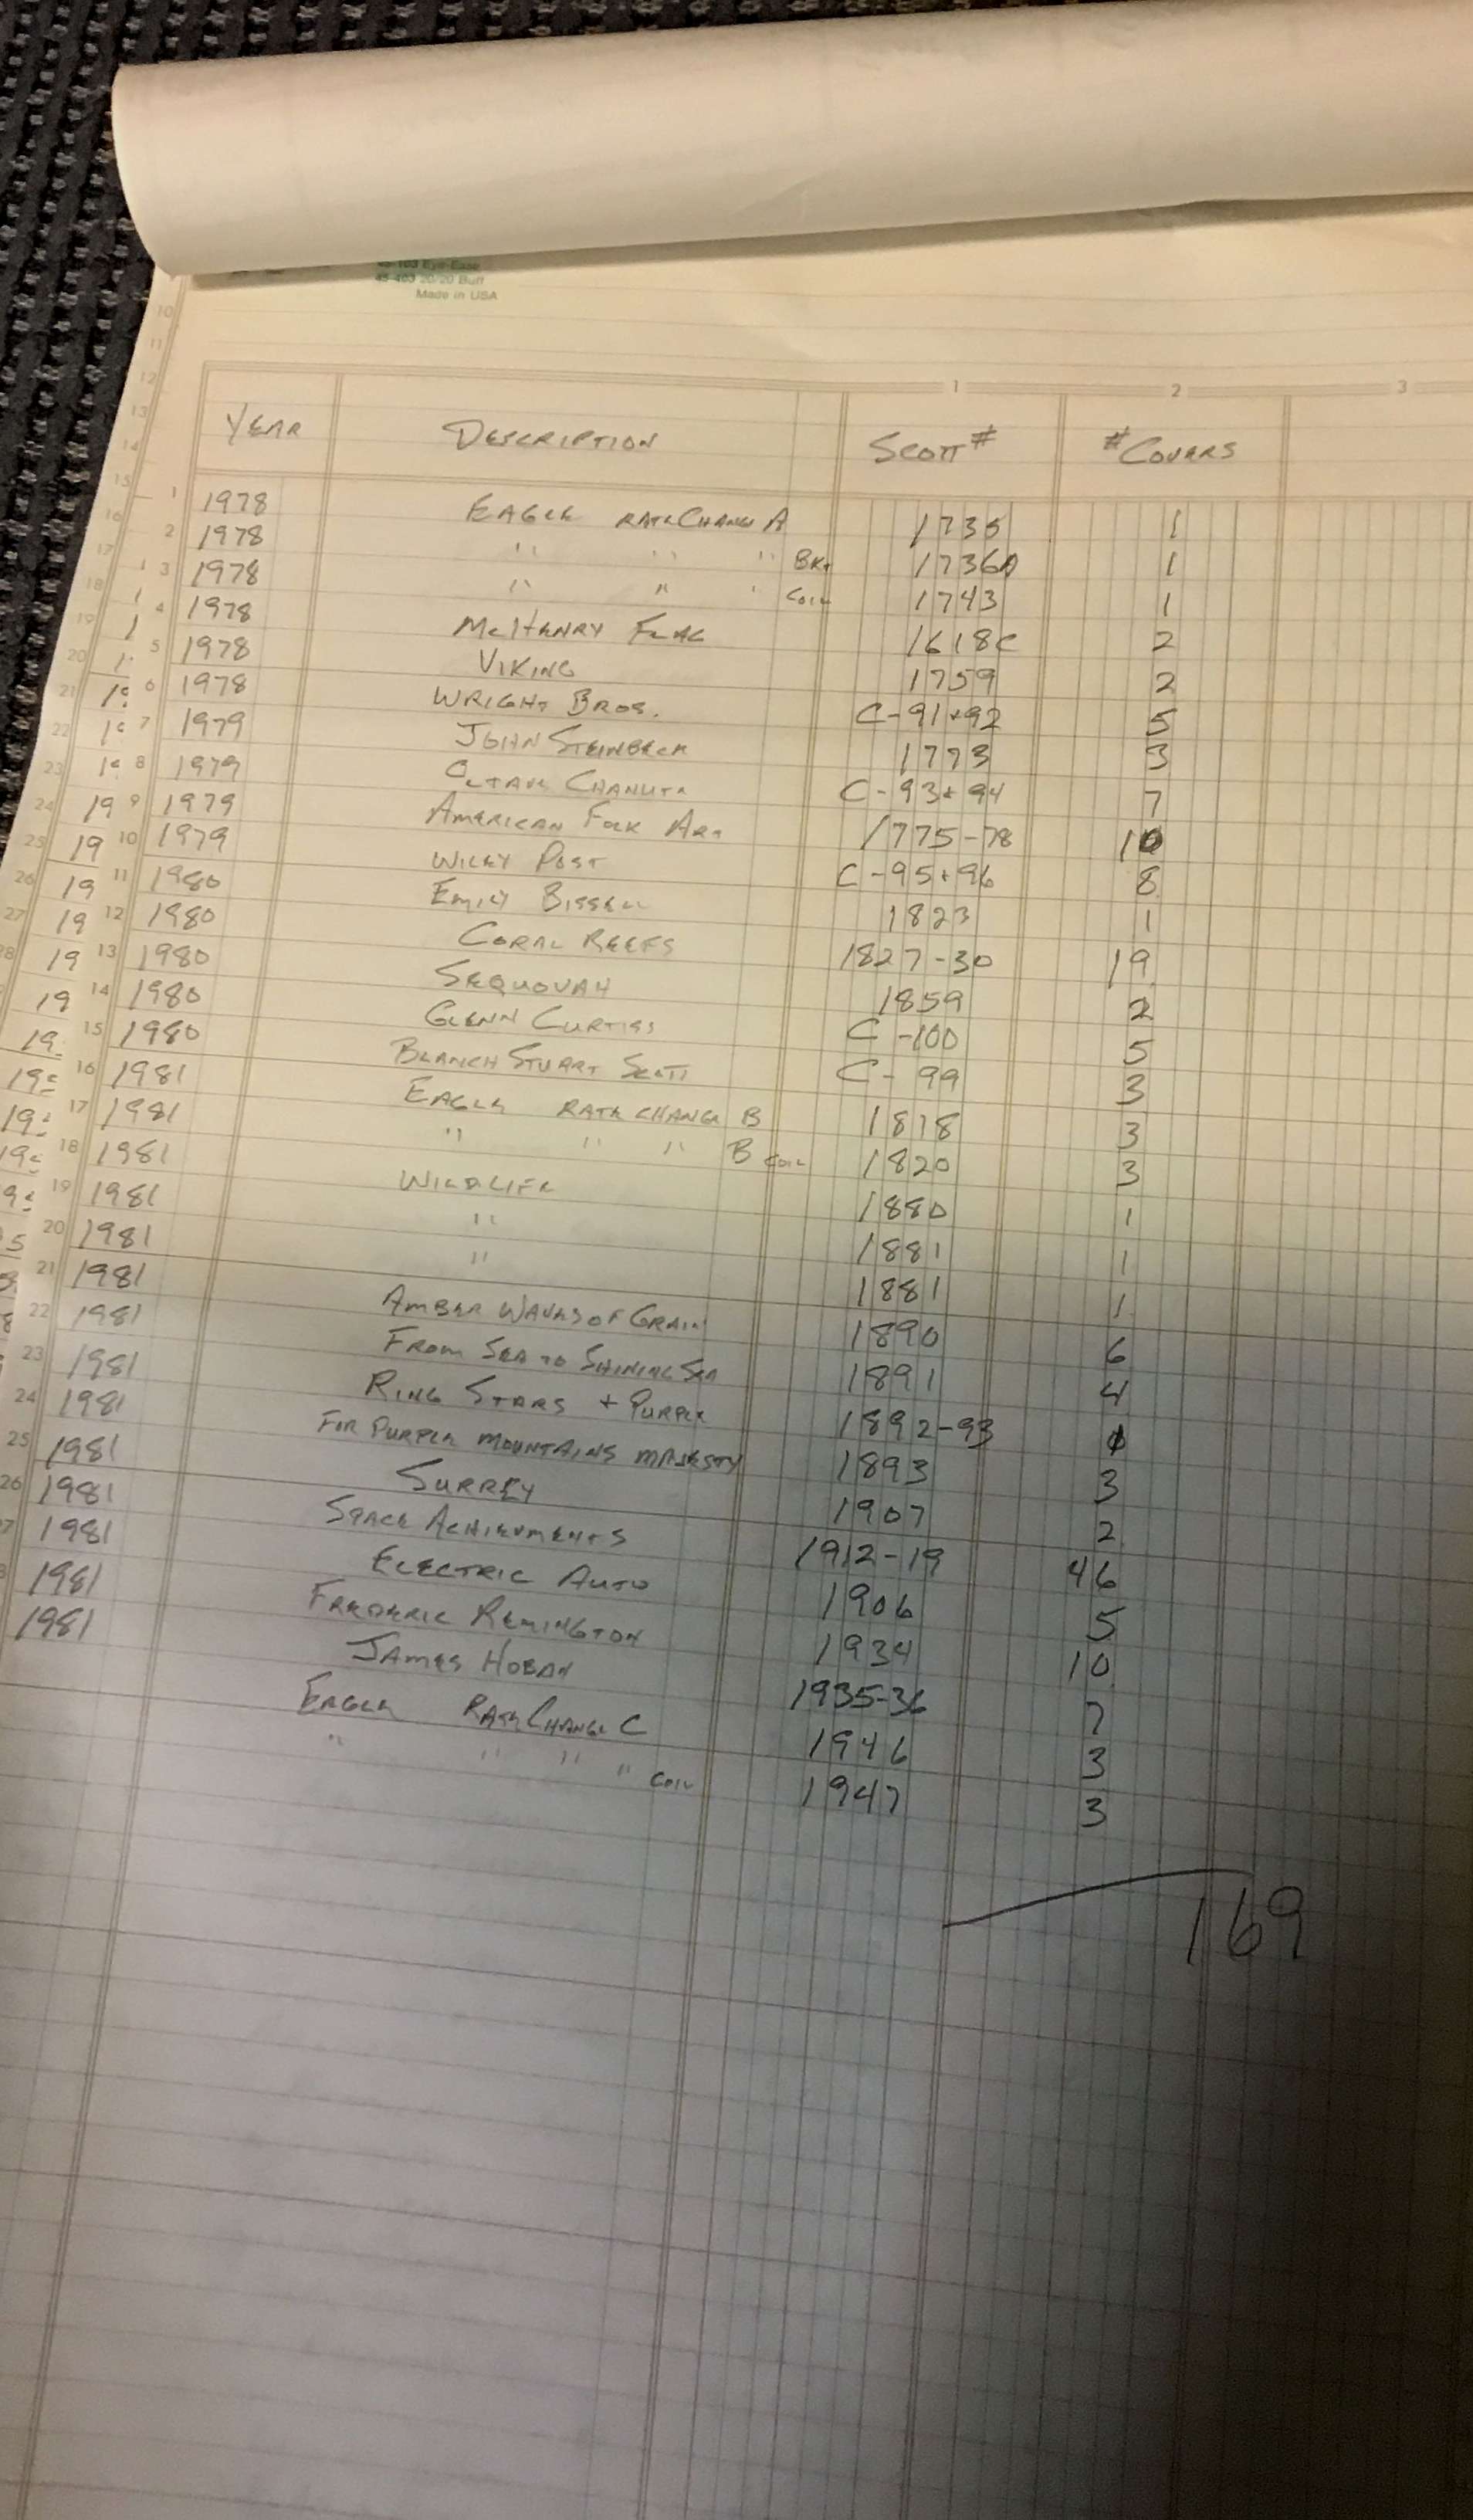 45-103 Eye-Ease
45-403 20/20 Buff
Made in USA
1 2 3
YEAR DESCRIPTION SCOTT # # COVERS
1 1978 EAGLE RATE CHANGE A 1735 1
2 1978 " " " BKT 1736A 1
3 1978 " " " COIL 1743 1
4 1978 McHENRY FLAG 1618C 2
5 1978 VIKING 1759 2
6 1978 WRIGHT BROS. C-91+92 5
7 1979 JOHN STEINBECK 1773 3
8 1979 OCTAVE CHANUTE C-93+94 7
9 1979 AMERICAN FOLK ART 1775-78 10
10 1979 WILEY POST C-95+96 8
11 1980 EMILY BISSELL 1823 1
12 1980 CORAL REEFS 1827-30 19
13 1980 SEQUOYAH 1859 2
14 1980 GLENN CURTISS C-100 5
15 1980 BLANCH STUART SCOTT C-99 3
16 1981 EAGLE RATE CHANGE B 1818 3
17 1981 " " " B COIL 1820 3
18 1981 WILDLIFE 1880 1
19 1981 " 1881 1
20 1981 " 1881 1
21 1981 AMBER WAVES OF GRAIN 1890 6
22 1981 FROM SEA TO SHINING SEA 1891 4
23 1981 RING STARS + PURPLE 1892-93
24 1981 FOR PURPLE MOUNTAINS MAJESTY 1893 3
25 1981 SURREY 1907 2
26 1981 SPACE ACHIEVMENTS 1912-19 46
1981 ELECTRIC AUTO 1906 5
1981 FREDERIC REMINGTON 1934 10
1981 JAMES HOBAN 1935-36 7
EAGLE RATE CHANGE C 1946 3
" " " " COIL 1947 3
169